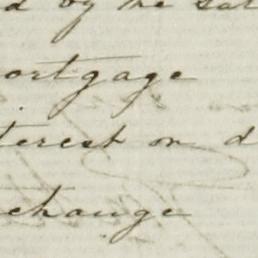 d by the sa
ortgage
terest on d
change